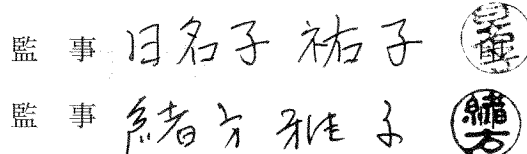 監事 日名子 祐子
監事 緒方 雅子 緒方